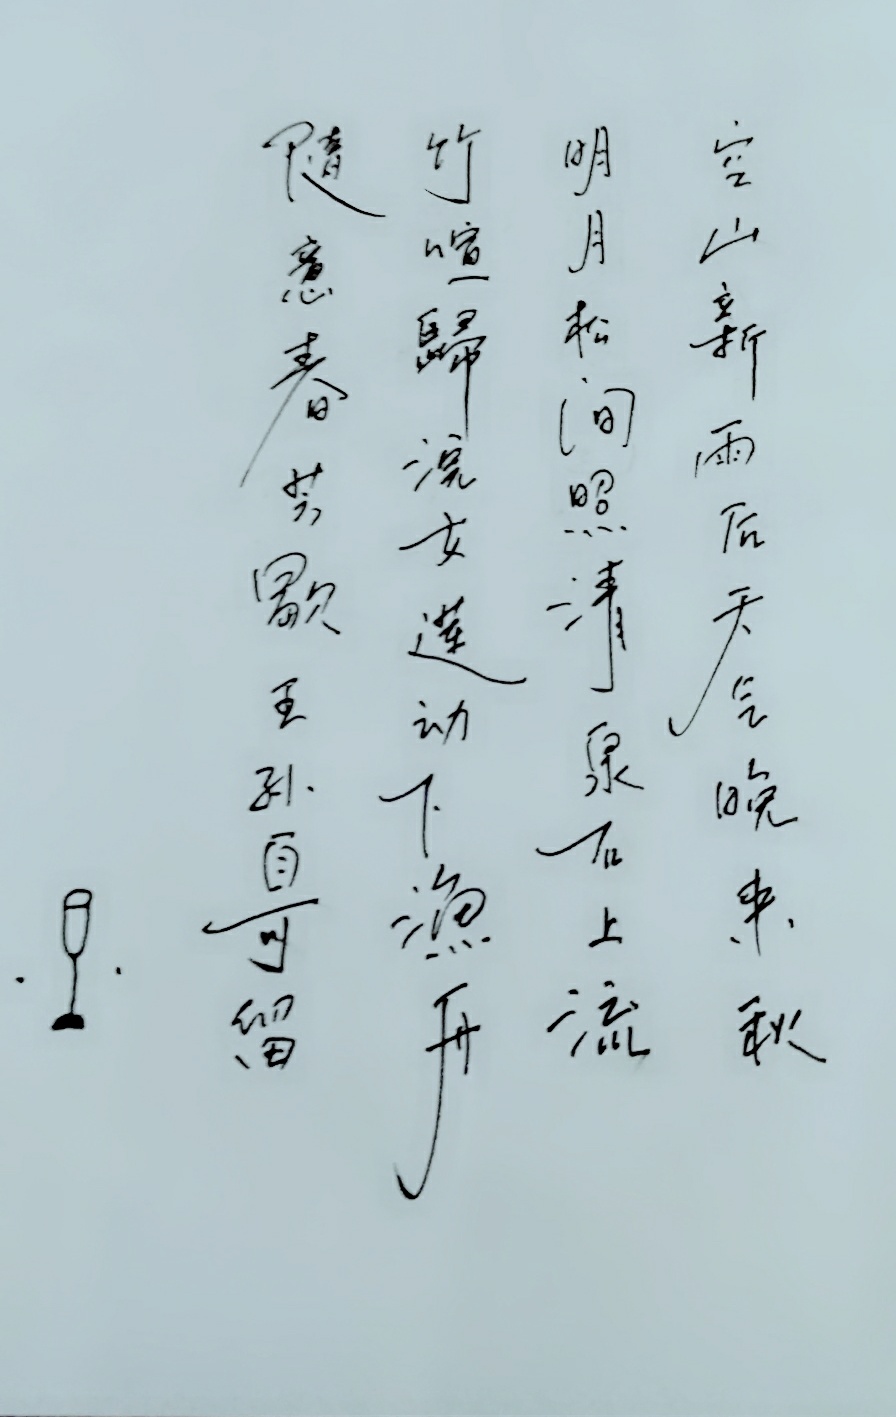 空山新雨后天气晚来秋
明月松间照清泉石上流
竹喧歸浣女莲动下渔舟
随意春芳歇王孙自可留